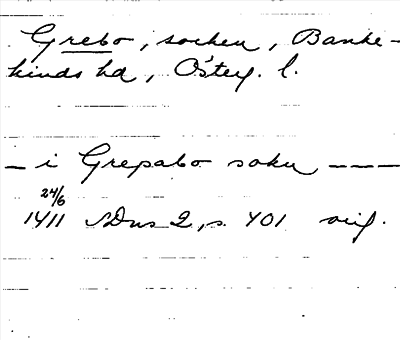 Grebo, socken, Banke-
kinds hd, Österg. l.
— i Grepabo sokn — — —
24/6
1411 SDns 2, s. 401 orig.